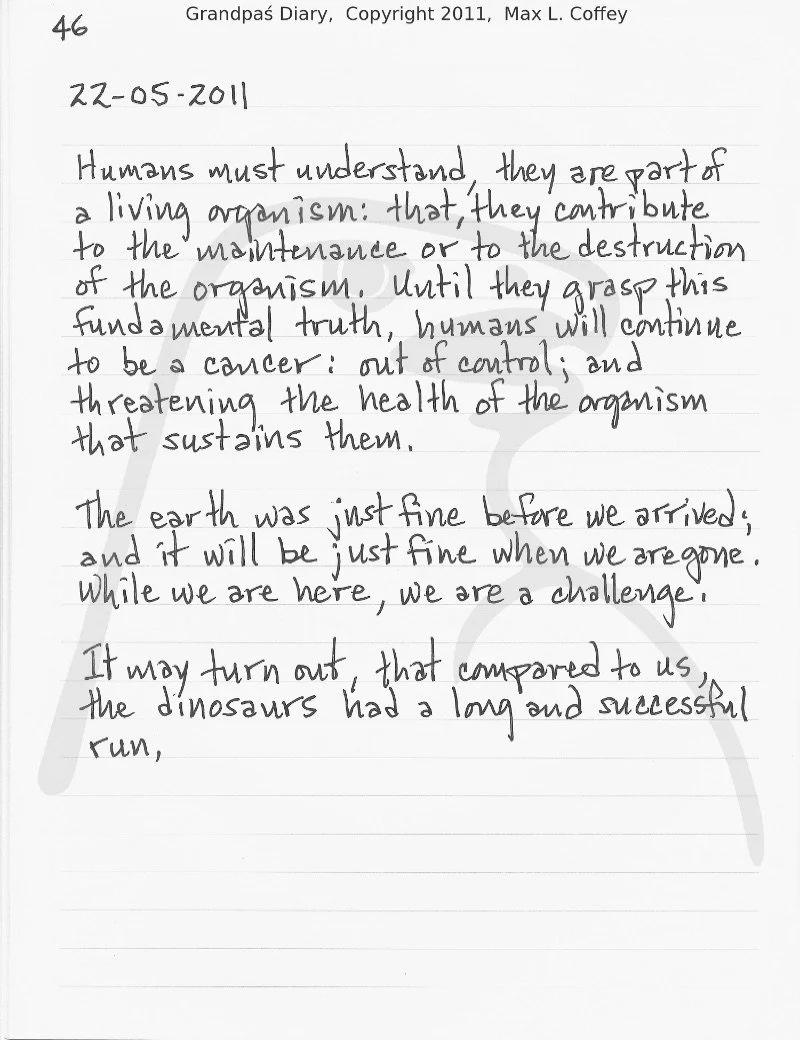 Grandpaś Diary, Copyright 2011, Max L. Coffey
46
22-05-2011
Humans must understand, they are part of
a living organism: that, they contribute
to the maintenance or to the destruction
of the organism. Until they grasp this
fundamental truth, humans will continue
to be a cancer: out of control; and
threatening the health of the organism
that sustains them.
The earth was just fine before we arrived;
and it will be just fine when we are gone.
While we are here, we are a challenge.
It may turn out, that compared to us,
the dinosaurs had a long and successful
run,